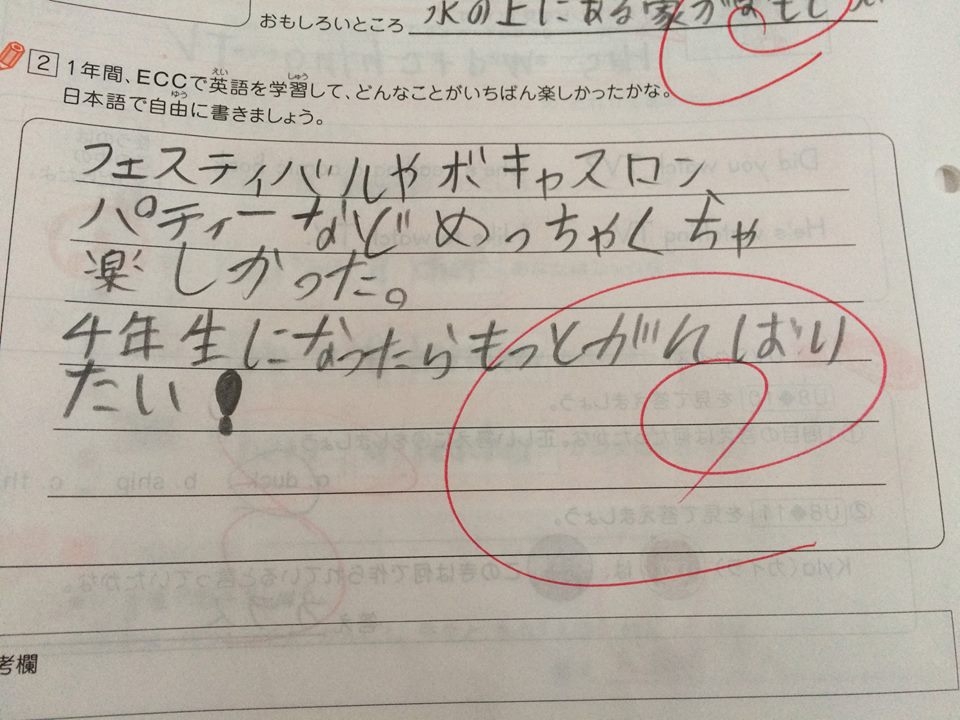 おもしろいところ 水の上にある家が
2 1年間、ECCで英語を学習して、どんなことがいちばん楽しかったかな。
日本語で自由に書きましょう。
フェスティバルやボキャスロン、
パティーなどめっちゃくちゃ
楽しかった。
4年生になったらもっとがんばり
たい!
考欄